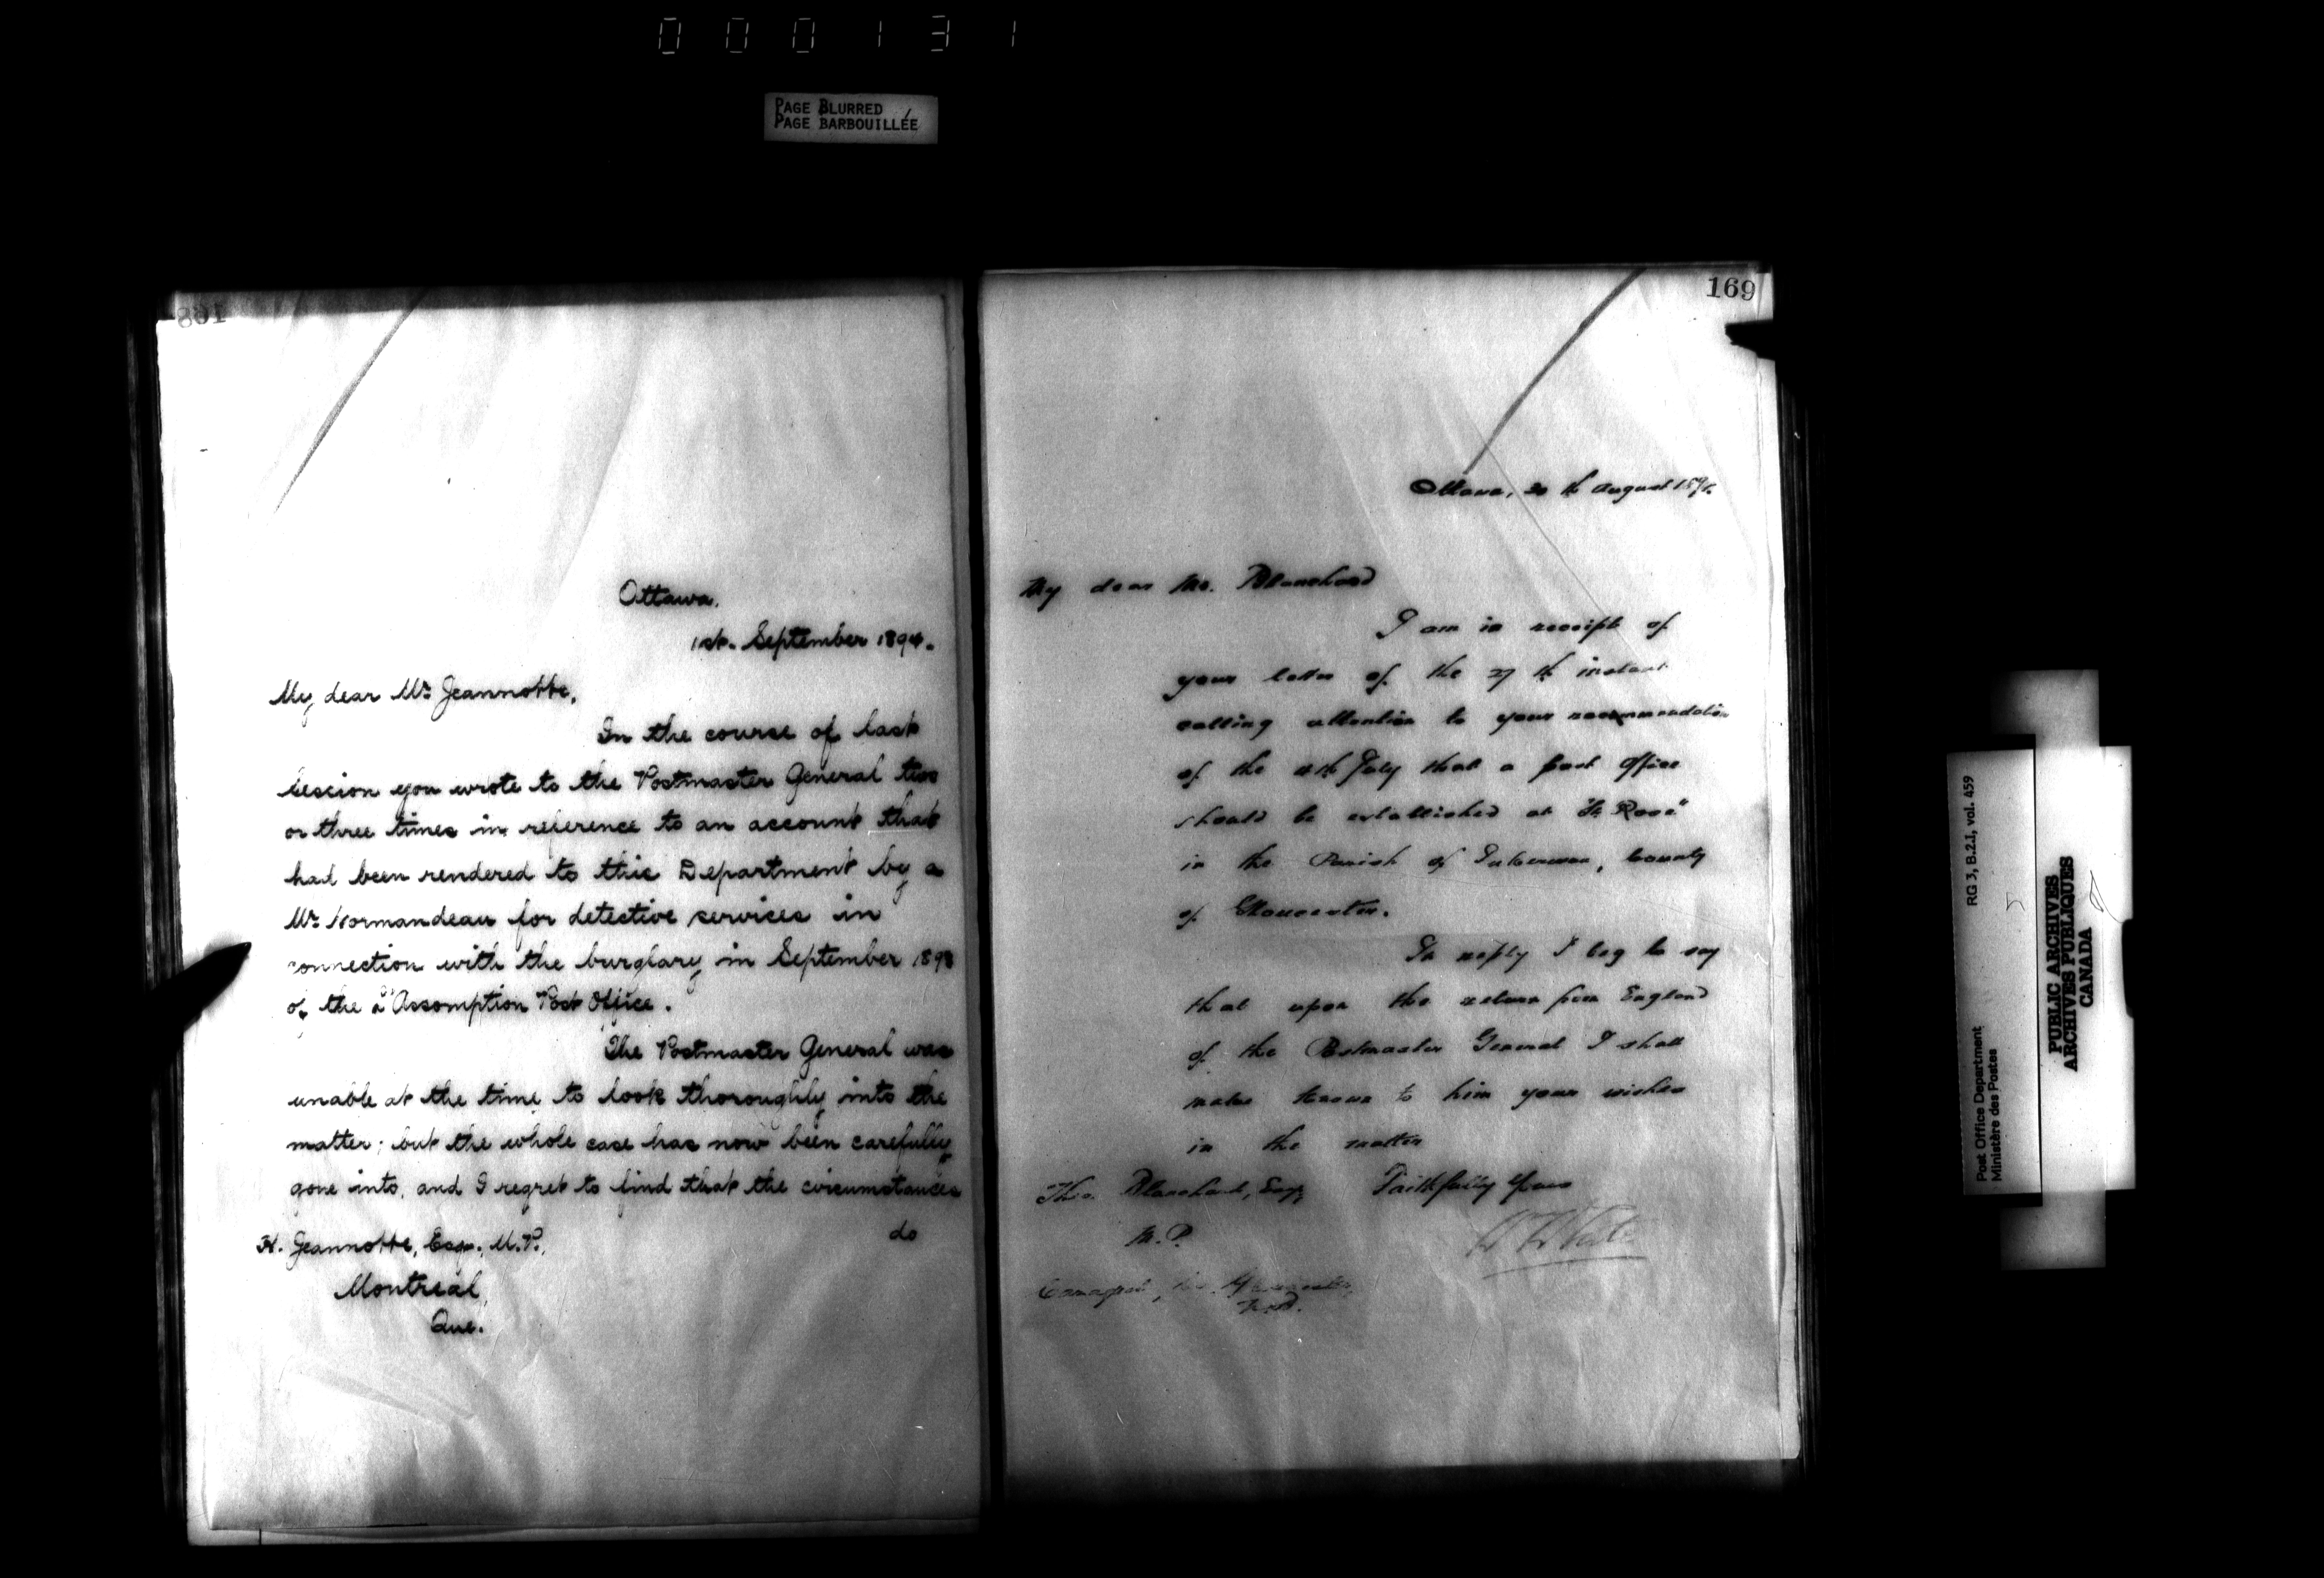 000131
PAGE BLURRED
PAGE BARBOUILLÉE
168
Ottawa.
1st. September 1894.
My dear Mr. Jeannotte,
In the course of last
session you wrote to the Postmaster General two
or three times in reference to an account that
had been rendered to this Department by a
Mr. Normandeau for detective services in
connection with the burglary in September 1893
of the L'Assomption Post Office.
The Postmaster General was
unable at the time to look thoroughly into the
matter; but the whole case has now been carefully
gone into, and I regret to find that the circumstances
do
H. Jeannotte, Esq., M.P.,
Montreal,
Que.
169
Ottawa, 30th August 1894.
My dear Mr. Blanchard
I am in receipt of
your letter of the 27th instant
calling attention to your recommendation
of the July that a post office
should be established at "St. Rose"
in the Parish of Inkerman, County
of Gloucester.
In reply I beg to say
that upon the return from England
of the Postmaster General I shall
make known to him your wishes
in the matter
Faithfully Yours
Theo. Blanchard, Esq,
M.P.
Caraquet, Co. Gloucester,
N.B.
Post Office Department
Ministère des Postes
RG 3, B.2.1, vol. 459
PUBLIC ARCHIVES
ARCHIVES PUBLIQUES
CANADA